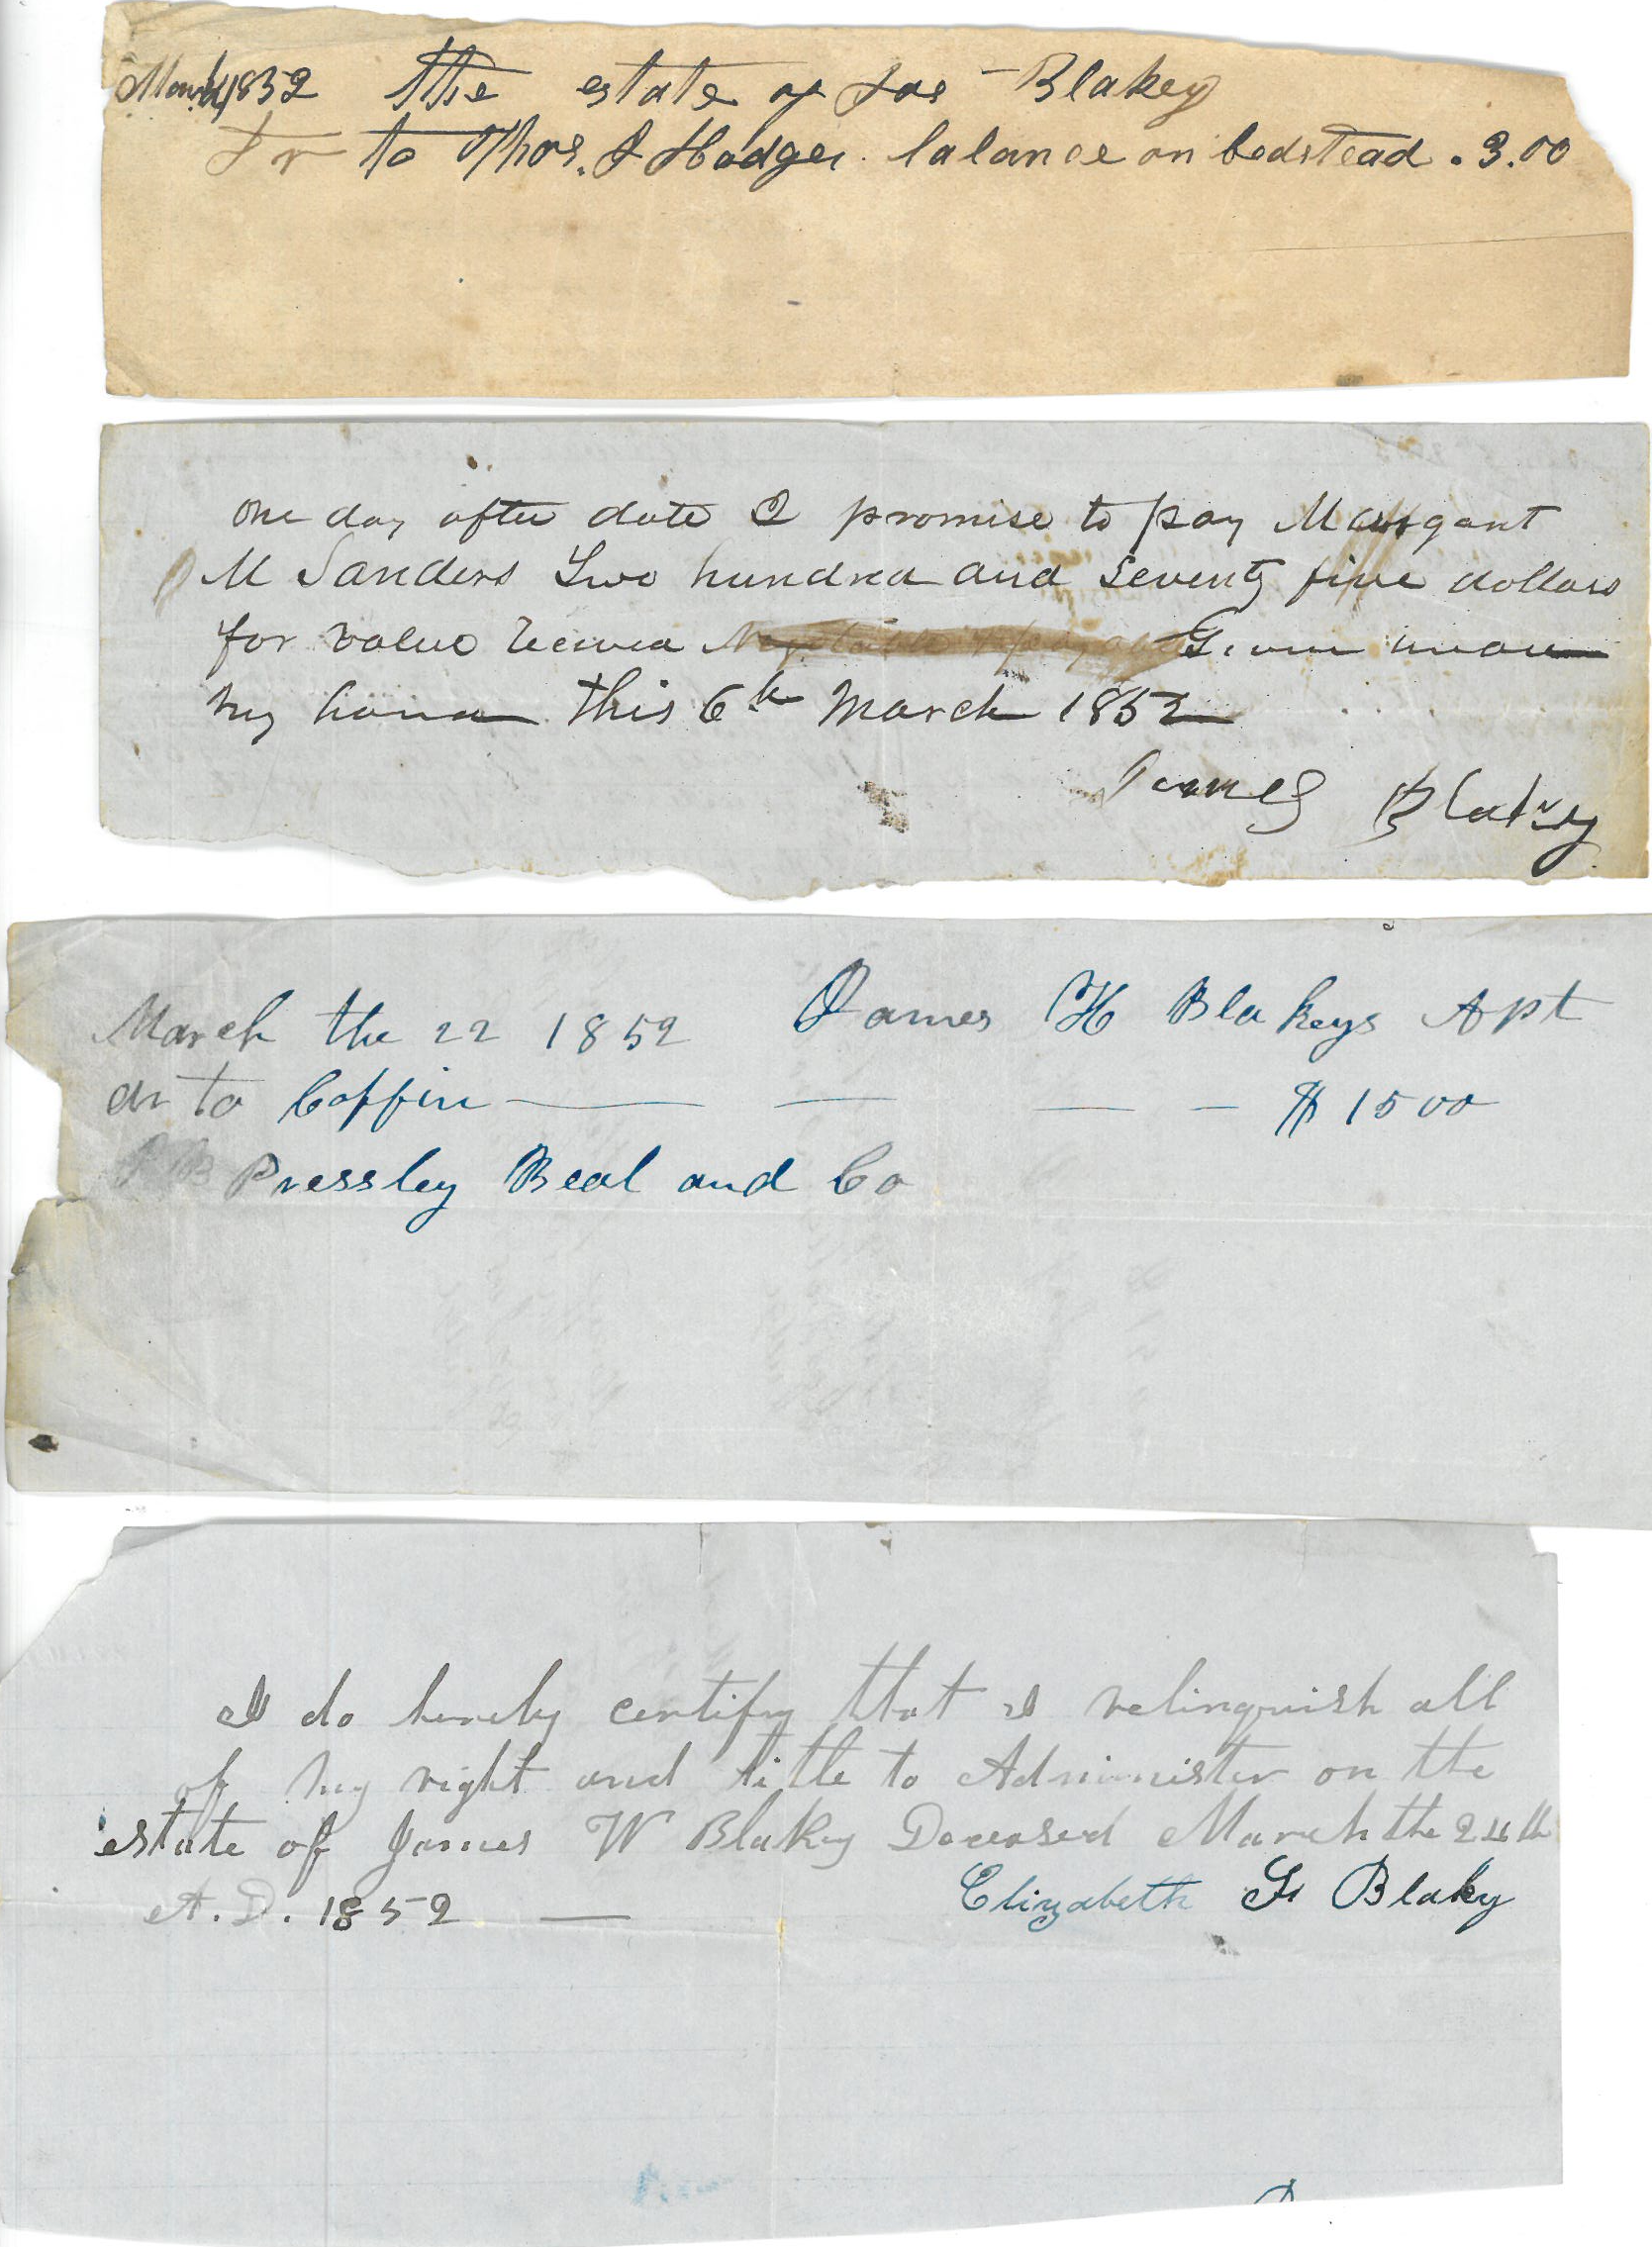 March 1852 the estate of Jas Blakey
Dr to Thos. J Hodges. balance on bedstead . 3.00
one day after date I promise to pay Margaret
M Sanders Two hundred and Seventy five dollars
for value received Negotiable & payable Given under
my hand this 6th March 1852
James Blakey
March the 22 1852 James H Blakeys Apt
dr to Coffin — — — — $ 15 00
Pressley Beal and Co
I do hereby certify that I relinquish all
of my right and title to Administer on the
estate of James W Blakey Deceased March the 24th
A. D. 1852 —
Elizabeth G Blakey